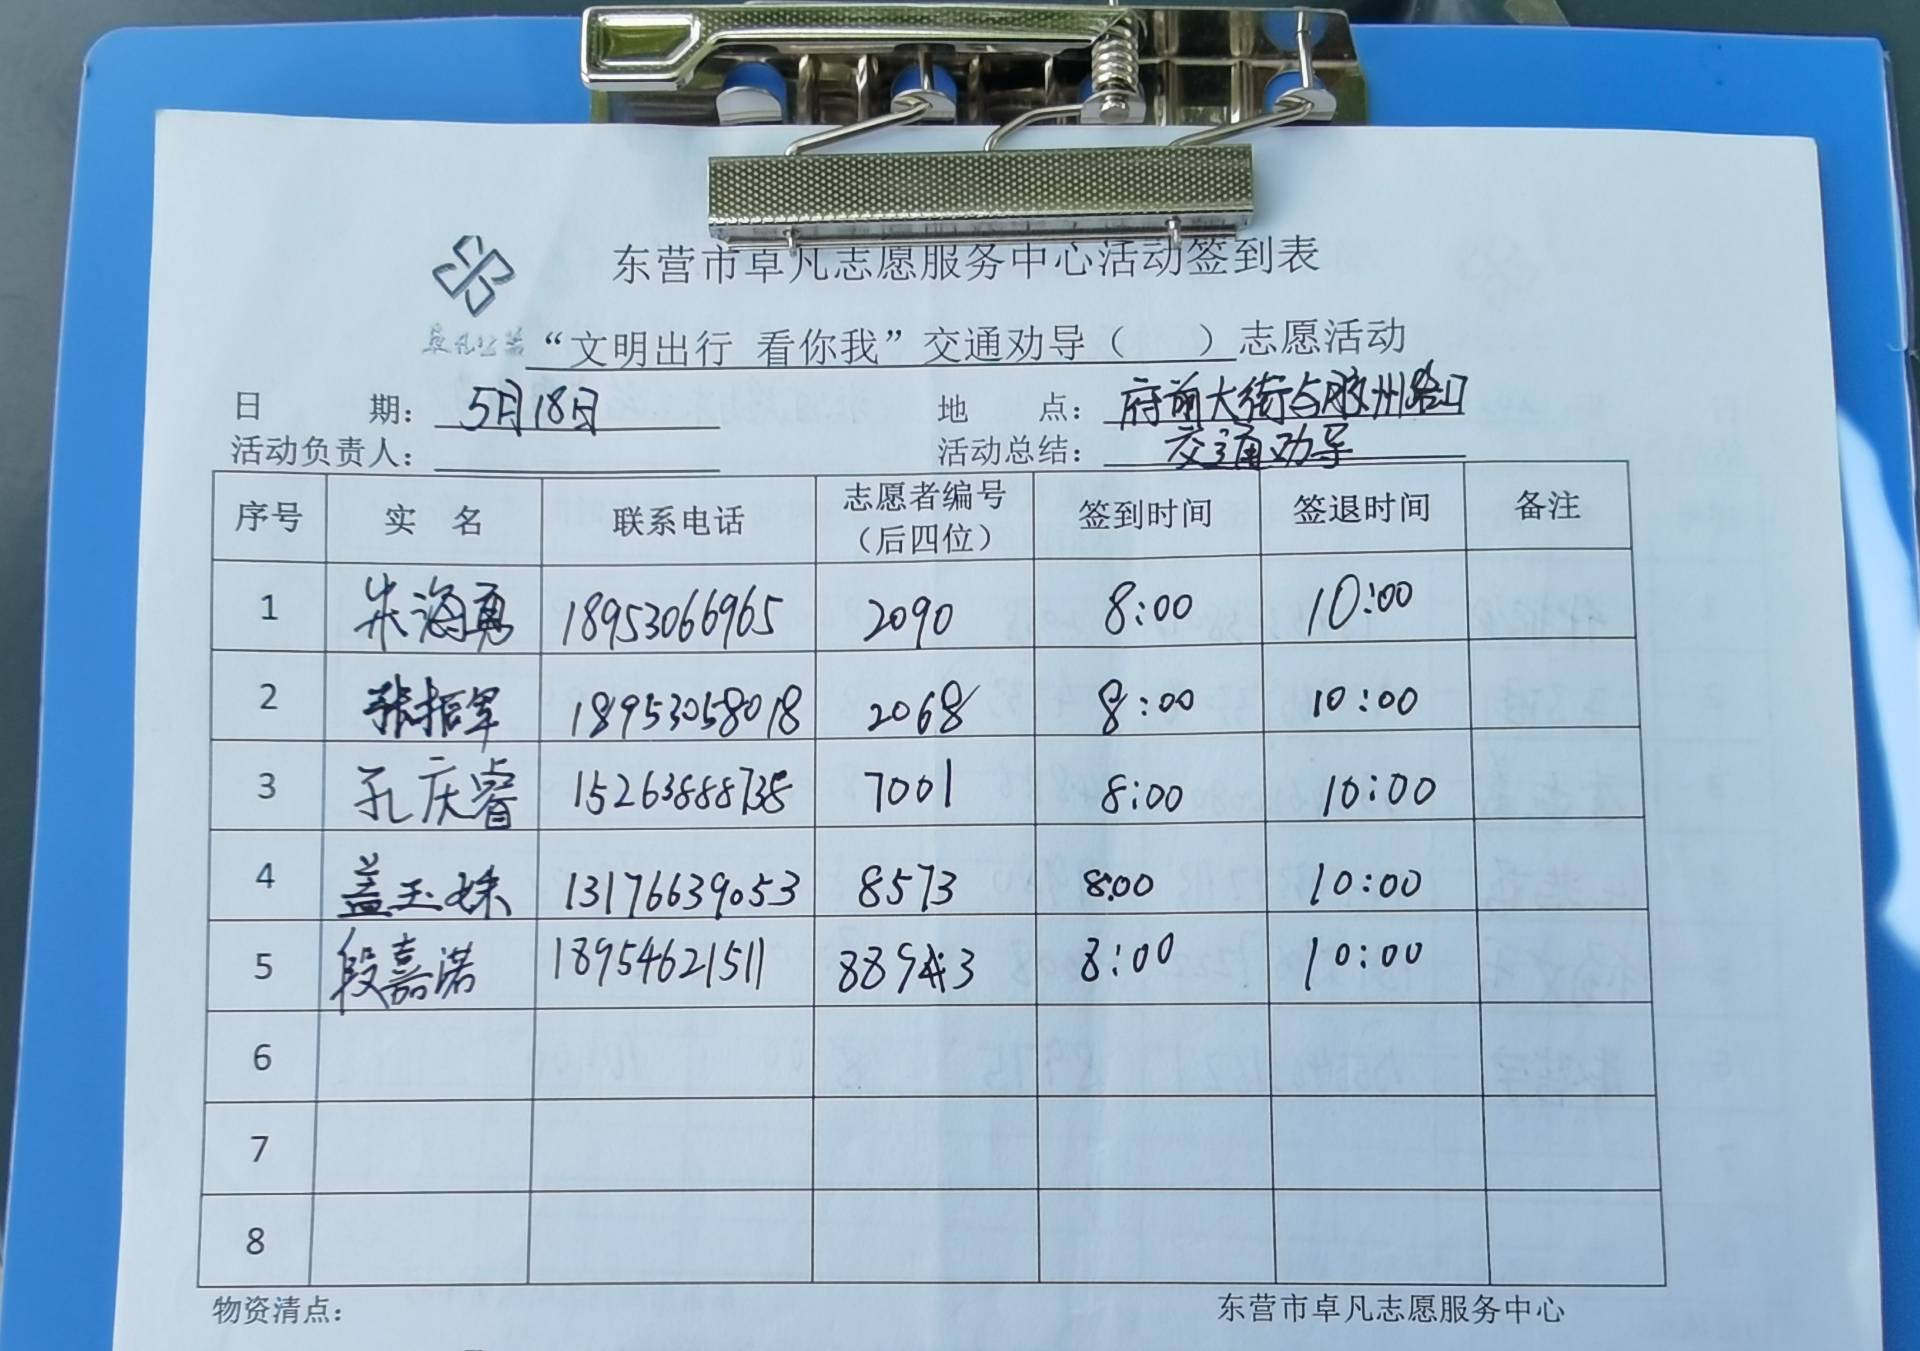 东营市卓凡志愿服务中心活动签到表
卓凡公益
“文明出行 看你我”交通劝导（ ）志愿活动
日 期： 5月18日 地 点： 府前大街与胶州路口
活动负责人： 活动总结： 交通劝导
序号 实 名 联系电话 志愿者编号（后四位） 签到时间 签退时间 备注
1 朱海勇 18953066965 2090 8:00 10:00
2 张振军 18953058018 2068 8:00 10:00
3 孔庆睿 15263888738 7001 8:00 10:00
4 盖玉姝 13176639053 8573 8:00 10:00
5 段嘉诺 18954621511 8:00 10:00
6
7
8
物资清点： 东营市卓凡志愿服务中心